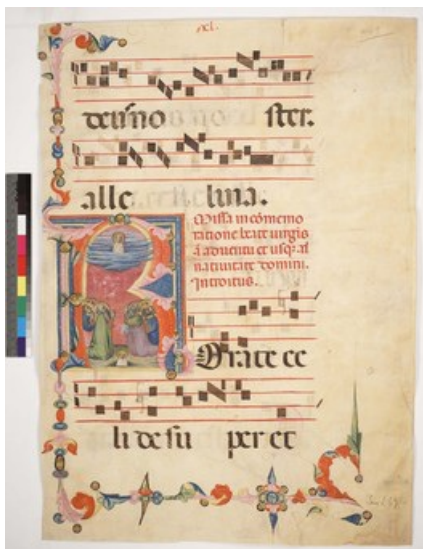 xl.
deus no ster.
alle luia.
Missa in cōmemo
ratione beate uirgis
ā aduentu et usq; ad
natiuitate domini.
Introitus.
Rorate ce
li de su per et